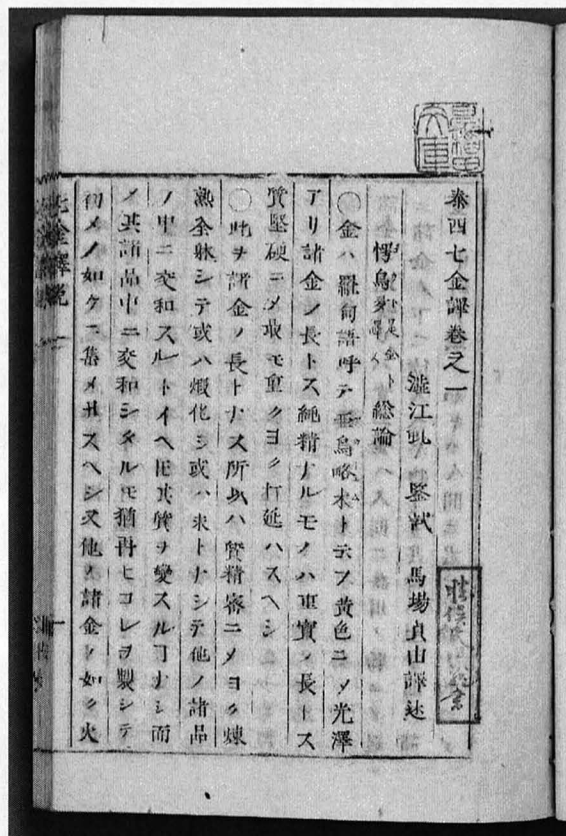 泰西七金譯卷之一
澁江虬 鑒試 馬場貞山譯述
総論
○金ハ羅甸語呼テ亜烏略木ト云フ黄色ニメ光澤
アリ諸金ノ長トス純精ナルモノハ重寶ノ長トス
質堅硬ニメ最モ重クヨク打延ハスヘシ
○此ヲ諸金ノ長トナス所以ハ質精密ニメヨク煉
熟全躰シテ或ハ煆化シ或ハ末トナシテ他ノ諸品
ノ中ニ交和スルトイヘ𪜈其質ヲ變スルヿナシ而
メ其諸品中ニ交和シタルモ猶再ヒコレヲ製シテ
初メノ如クニ集メ出スヘシ又他ノ諸金ノ如ク火
七金譯説